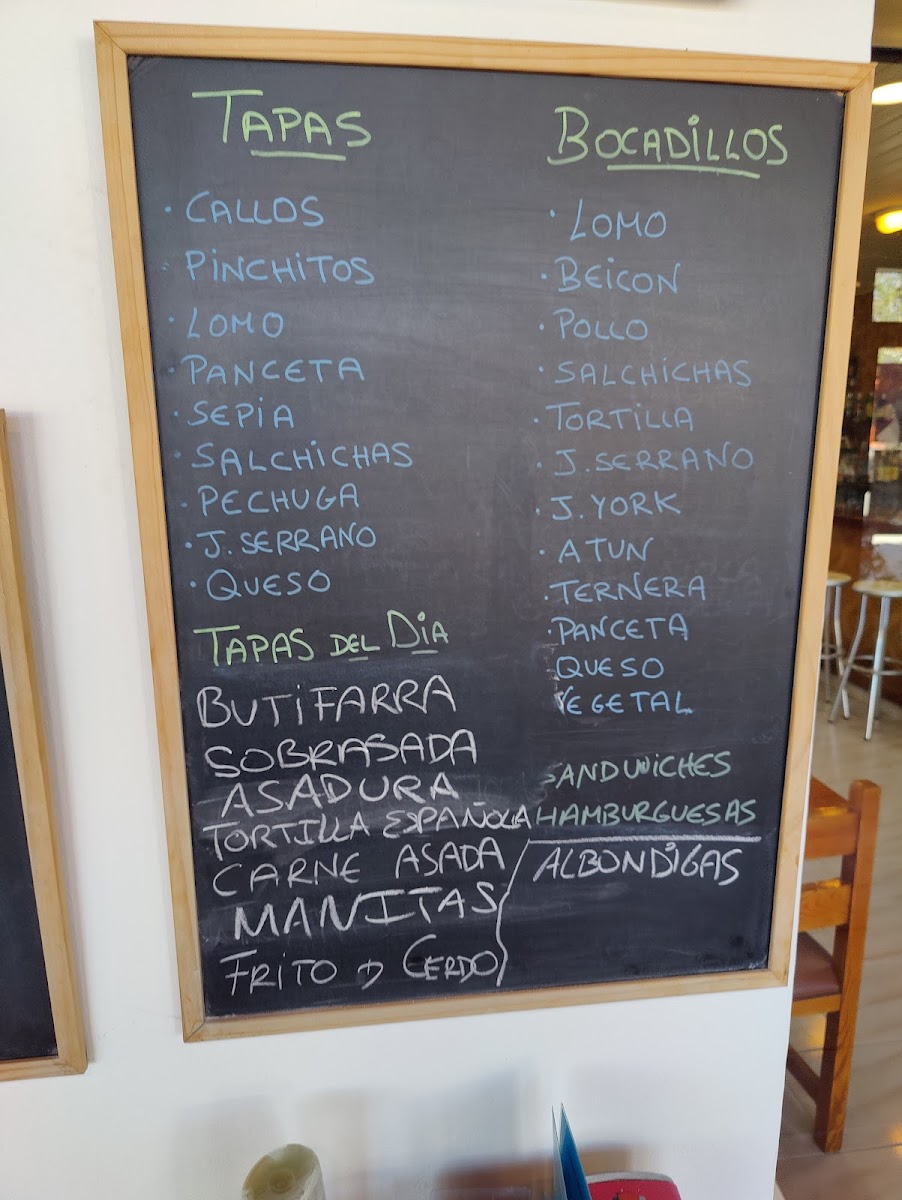 TAPAS
· CALLOS
· PINCHITOS
· LOMO
· PANCETA
· SEPIA
· SALCHICHAS
· PECHUGA
· J. SERRANO
· QUESO
TAPAS DEL DIA
BUTIFARRA
SOBRASADA
ASADURA
TORTILLA ESPAÑOLA
CARNE ASADA
MANITAS
FRITO D CERDO
BOCADILLOS
· LOMO
· BEICON
· POLLO
· SALCHICHAS
· TORTILLA
· J. SERRANO
· J. YORK
· ATUN
· TERNERA
· PANCETA
· QUESO
VEGETAL
SANDWICHES
HAMBURGUESAS
ALBONDIGAS